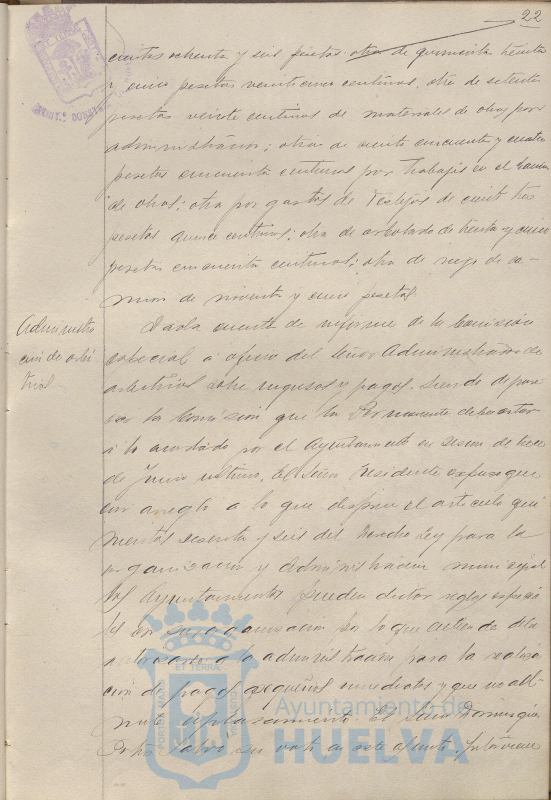 22
cientas ochenta y seis pesetas. otra de quinientas treinta
y cinco pesetas veinticinco centimos, otra de setenta
pesetas veinte centimos de materiales de obras por
administración; otra de ciento cincuenta y cuatro
pesetas cincuenta centimos por trabajos en el
de obras; otra por gastos de Festejos de ciento tres
pesetas quince centimos; otra de arbolado de treinta y cinco
pesetas cincuenta centimos; otra de riego de ca-
minos de noventa y cinco pesetas.
Administra
cion de arbi
trios
Dada cuenta de informe de la Comisión
especial a oficio del Señor Administrador de
arbitrios sobre ingresos y pagos, siendo de pare
cer la Comisión que la Permanente debe estar
a lo acordado por el Ayuntamiento en sesion de trece
de Junio ultimo. El Señor Presidente expuso que
con arreglo a lo que dispone el articulo qui
nientos sesenta y seis del Decreto Ley para la
organizacion y Administracion municipal
los Ayuntamientos pueden dictar reglas especia
les en su organización por lo que entiende debe
a la administración para la realiza
ción de pagos pequeños inmediatos y que no ad
miten aplazamiento. El Señor Dominguez
salvó su voto en este asunto. Interviene
Ayuntamiento de
HUELVA